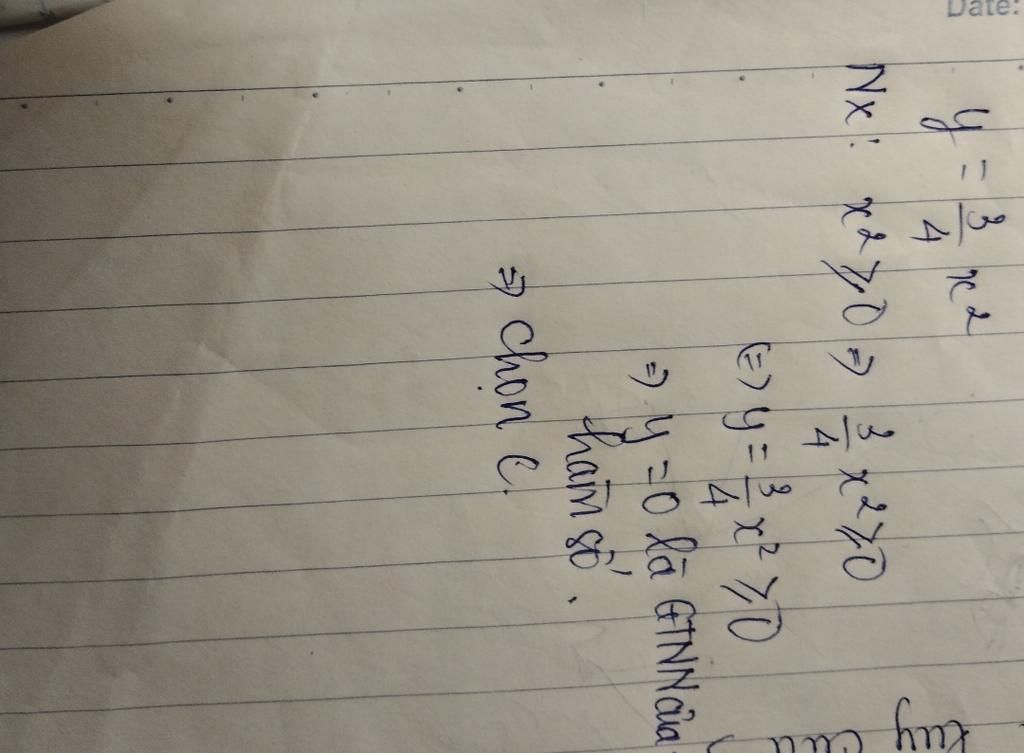 Date:
y = 3/4 x²
Nx: x² ⩾ 0 ⇒ 3/4 x² ⩾ 0
⇔ y = 3/4 x² ⩾ 0
⇒ y = 0 là GTNN của
hàm số.
⇒ Chọn C.